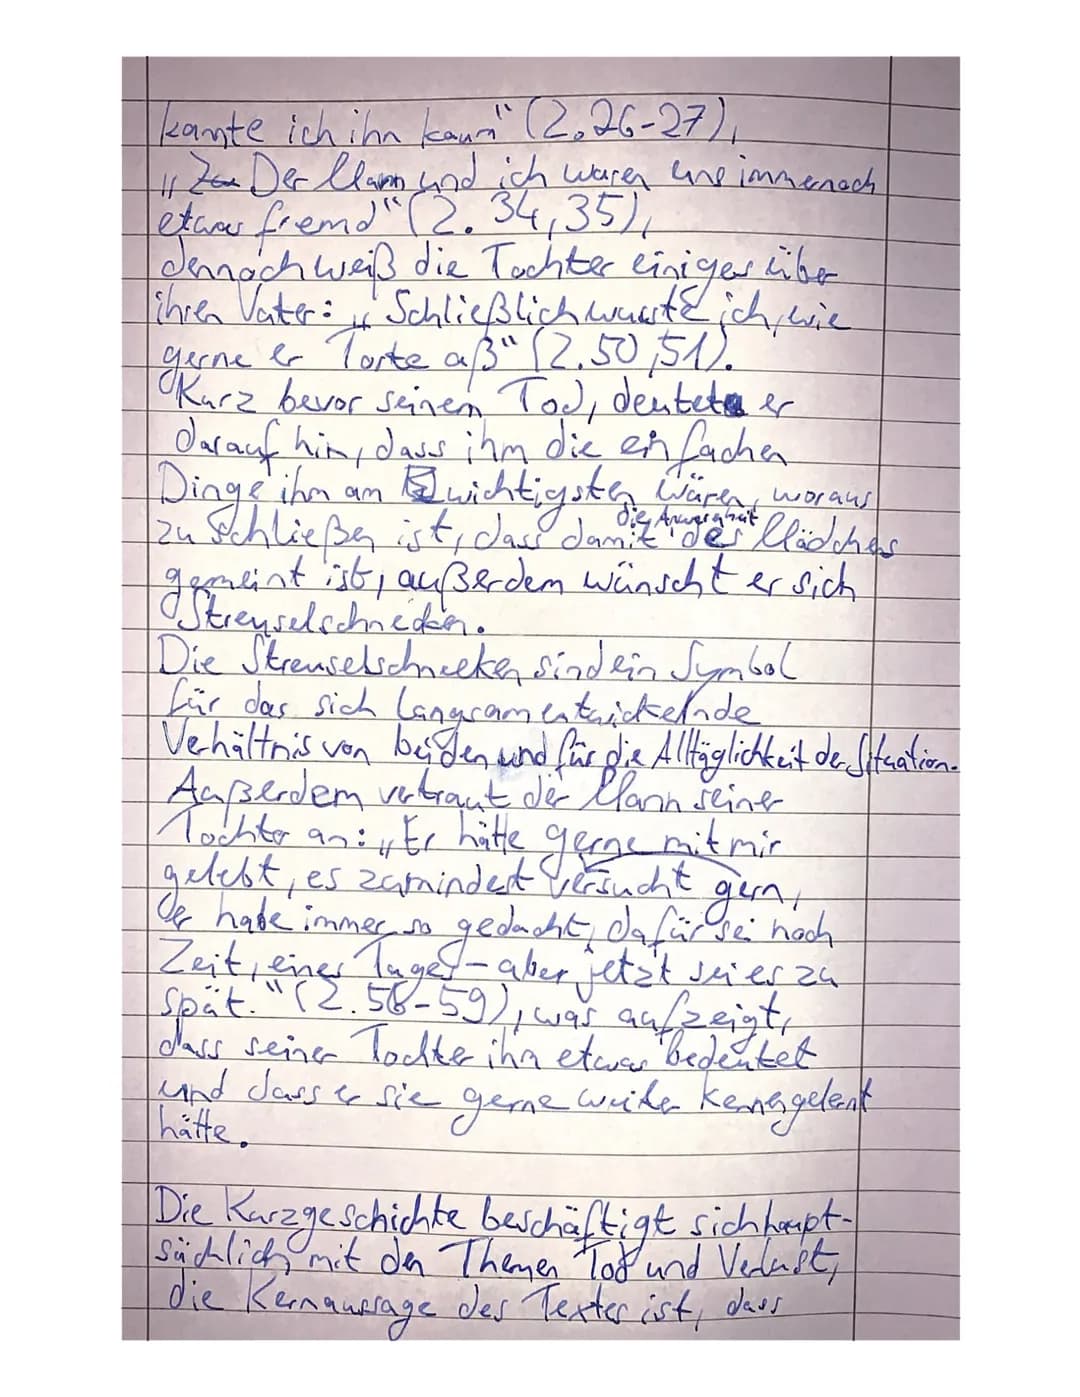 kannte ich ihn kaum" (Z. 26-27),
„Der Mann und ich waren uns immernoch
etwas fremd" (Z. 34,35),
dennoch weiß die Tochter einiges über
ihren Vater: „Schließlich wusste ich, wie
gerne er Torte aß" (Z. 50,51).
Kurz bevor seinem Tod, deutete er
darauf hin, dass ihm die einfachen
Dinge ihm am wichtigsten wären, woraus
zu schließen ist, dass damit die Anwesenheit des Mädchens
gemeint ist, außerdem wünscht er sich
Streuselschnecken.
Die Streuselschnecken sind ein Symbol
für das sich langsam entwickelnde
Verhältnis von beiden und für die Alltäglichkeit der Situation.
Außerdem vertraut der Mann seiner
Tochter an: „Er hätte gerne mit mir
gelebt, es zumindest versucht gern,
er habe immer so gedacht, dafür sei noch
Zeit, eines Tages - aber jetzt sei es zu
spät." (Z. 56-59), was aufzeigt,
dass seiner Tochter ihn etwas bedeutet
und dass er sie gerne weiter kennengelernt
hätte.
Die Kurzgeschichte beschäftigt sich haupt-
sächlich mit den Themen Tod und Verlust,
die Kernaussage des Textes ist, dass